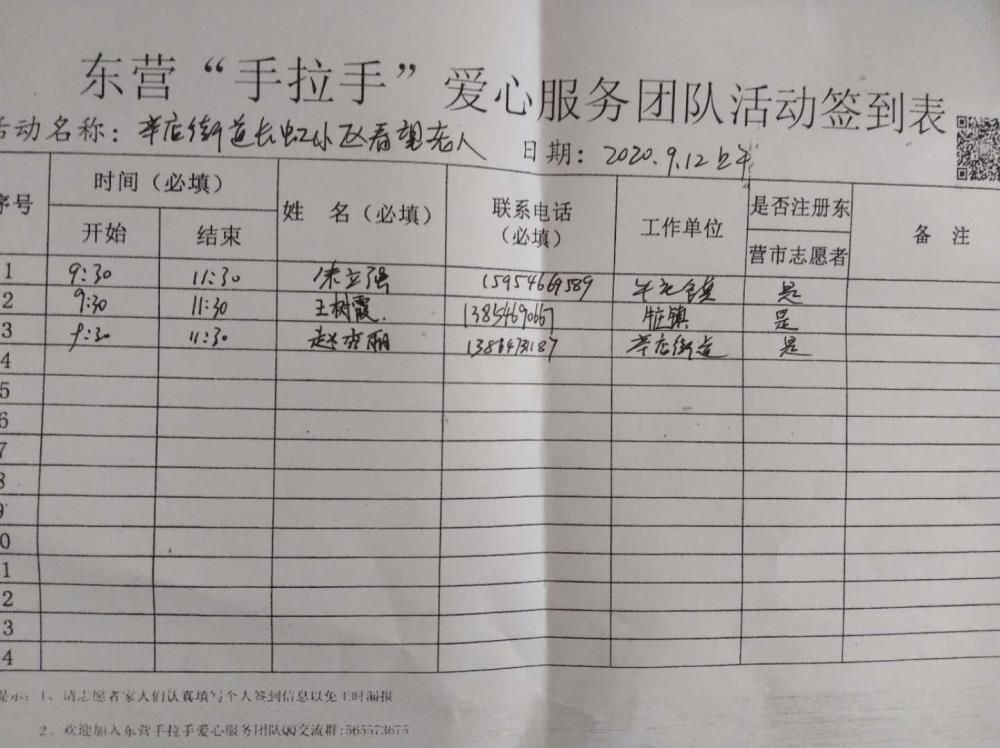 东营“手拉手”爱心服务团队活动签到表
活动名称：辛店街道长虹小区看望老人 日期：2020.9.12上午
序号 时间（必填） 姓 名（必填） 联系电话（必填） 工作单位 是否注册东营市志愿者 备 注
开始 结束
1 9:30 11:30 朱立强 15954669589 牛庄镇 是
2 9:30 11:30 王树霞 13854690667 牛庄镇 是
3 9:30 11:30 赵秀丽 辛店街道 是
4
5
6
7
8
9
0
1
2
3
4
提示：1、请志愿者家人们认真填写个人签到信息以免工时漏报
2、欢迎加入东营手拉手爱心服务团队QQ交流群:565573675